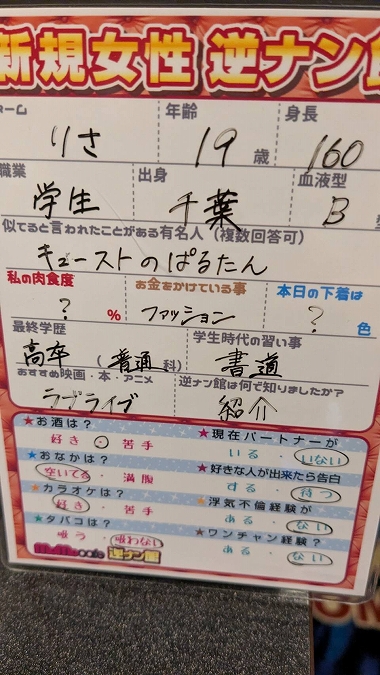 新規女性 逆ナン館
ーム 年齢 身長
りさ 19歳 160
職業 出身 血液型
学生 千葉 B型
似てると言われたことがある有名人（複数回答可）
キューストのぱるたん
私の肉食度 お金をかけている事 本日の下着は
?% ファッション ?色
最終学歴 学生時代の習い事
高卒（普通科） 書道
おすすめ映画・本・アニメ 逆ナン館は何で知りましたか?
ラブライブ 紹介
★お酒は？ ★現在パートナーが
好き・苦手 いる・いない
★おなかは？ ★好きな人が出来たら告白
空いてる・満腹 する・待つ
★カラオケは？ ★浮気不倫経験が
好き・苦手 ある・ない
★タバコは？ ★ワンチャン経験？
吸う・吸わない ある・ない
逆ナン館